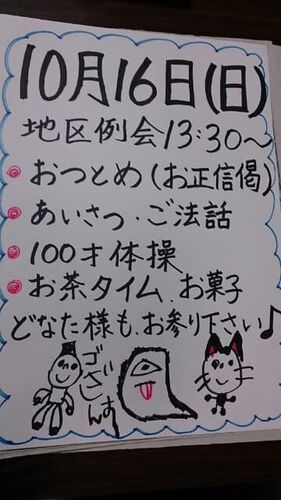 10月16日(日)
地区例会13:30〜
おつとめ(お正信偈)
あいさつ・ご法話
100才体操
お茶タイム、お菓子
どなた様も、お参り下さい♪
ゴざんす